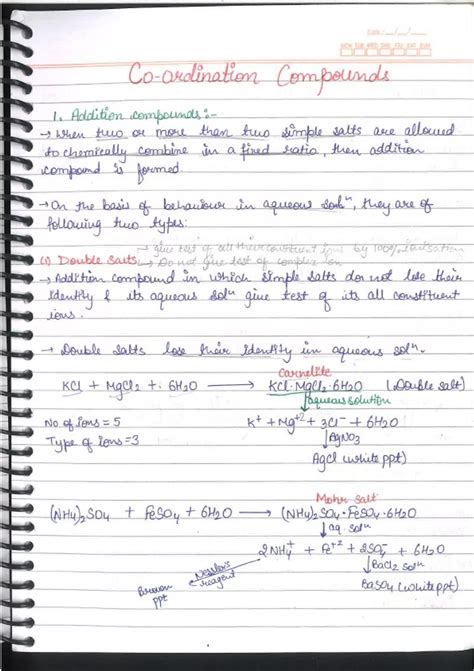 Date: __/__/__
MON TUE WED THU FRI SAT SUN
Co-ordination Compounds
1. Addition compounds :-
→ When two or more than two simple salts are allowed
to chemically combine in a fixed ratio, then addition
compound is formed.
→ On the basis of behaviour in aqueous solⁿ, they are of
following two types:
→ give test of all their constituent ions by 100% ionisation
(i) Double salts → Do not give test of complex ion
→ Addition compound in which simple salts do not lose their
identity & its aqueous solⁿ give test of its all constituent
ions.
→ Double salts lose their identity in aqueous solⁿ.
Carnelite
KCl + MgCl₂ + 6H₂O ⟶ KCl·MgCl₂·6H₂O (Double salt)
↓aqueous solution
No of ions = 5 K⁺ + Mg⁺² + 3Cl⁻ + 6H₂O
Type of ions = 3 ↓AgNO₃
AgCl (white ppt)
Mohr salt
(NH₄)₂SO₄ + FeSO₄ + 6H₂O ⟶ (NH₄)₂SO₄·FeSO₄·6H₂O
↓aq. solⁿ
2NH₄⁺ + Fe⁺² + 2SO₄⁻ + 6H₂O
Nessler's
reagent ↓BaCl₂ solⁿ
Brown
ppt BaSO₄ (white ppt)